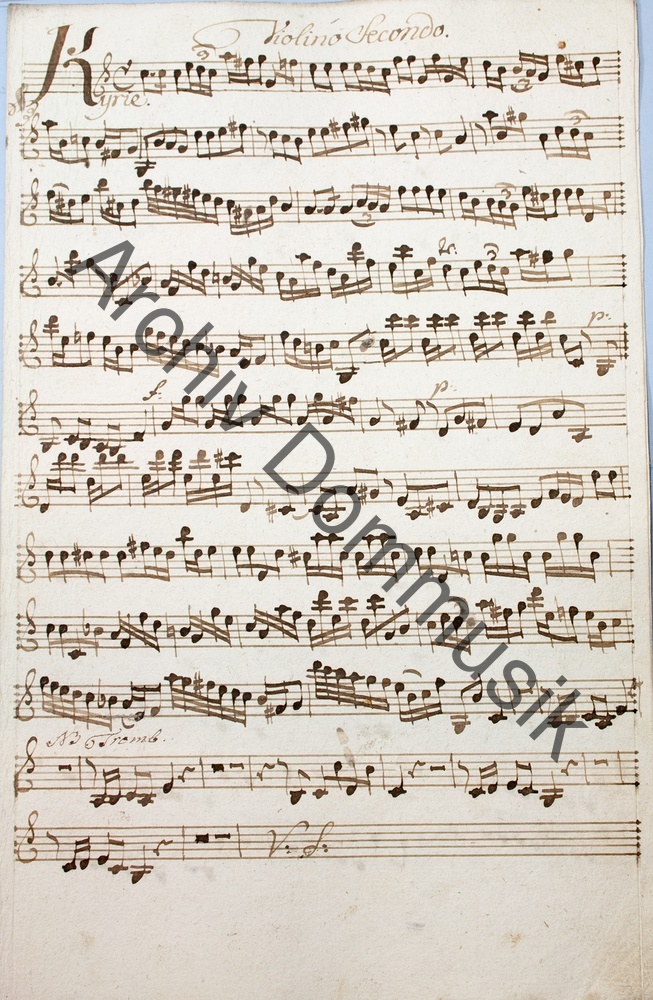 Violino Secondo.
Kyrie.
tr.
p:
f.
p:
NB 6 Tromb.
V: S:
Archiv Dommusik